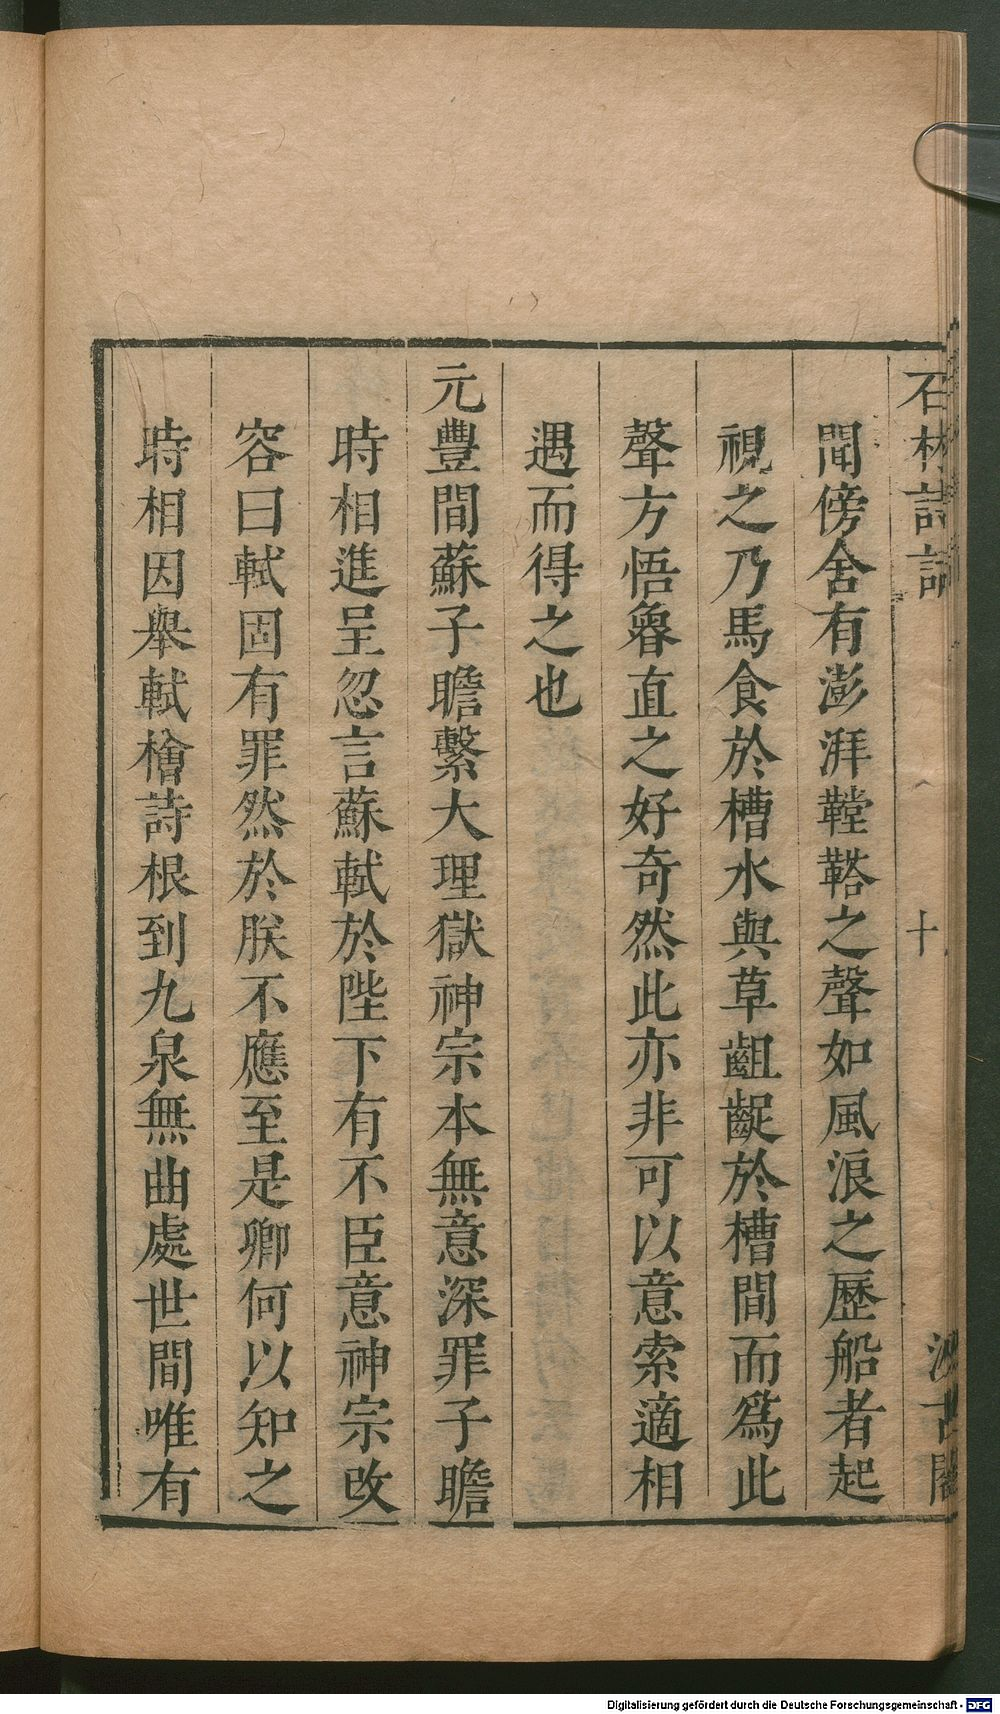 石林詩話
十
汲古閣
聞傍舍有澎湃鞺鞳之聲如風浪之歷船者起
視之乃馬食於槽水與草齟齬於槽間而爲此
聲方悟魯直之好奇然此亦非可以意索適相
遇而得之也
元豐間蘇子瞻繫大理獄神宗本無意深罪子瞻
時相進呈忽言蘇軾於陛下有不臣意神宗改
容曰軾固有罪然於朕不應至是卿何以知之
時相因舉軾檜詩根到九泉無曲處世間唯有
Digitalisierung gefördert durch die Deutsche Forschungsgemeinschaft - DFG